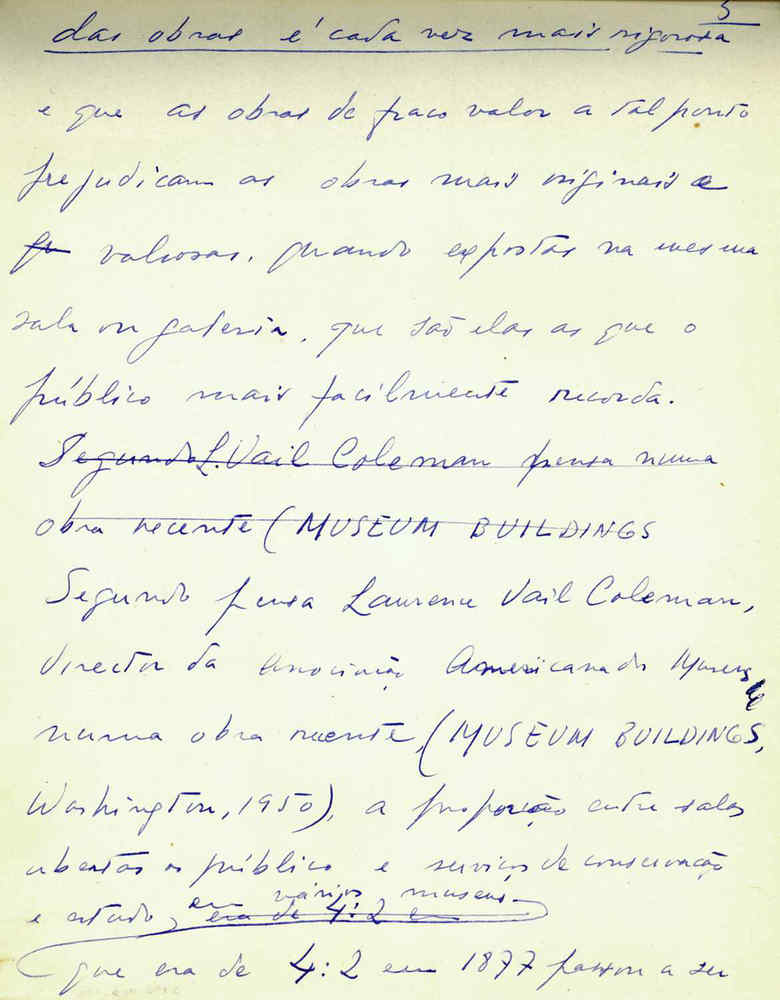 5
das obras é cada vez mais rigorosa
e que as obras de fraco valor a tal ponto
prejudicam as obras mais originais e
qu valiosas, quando expostas na mesma
sala ou galeria, que são elas as que o
público mais facilmente recorda.
Segundo L. Vail Coleman pensa numa
obra recente (MUSEUM BUILDINGS
Segundo pensa Laurence Vail Coleman,
director da Associação Americana de Museus
numa obra recente, (MUSEUM BUILDINGS,
Washington, 1950), a proporção entre salas
abertas ao público e serviços de conservação
em vários museus
e estudo, era de 4:2 em
que era de 4:2 em 1877 passou a ser